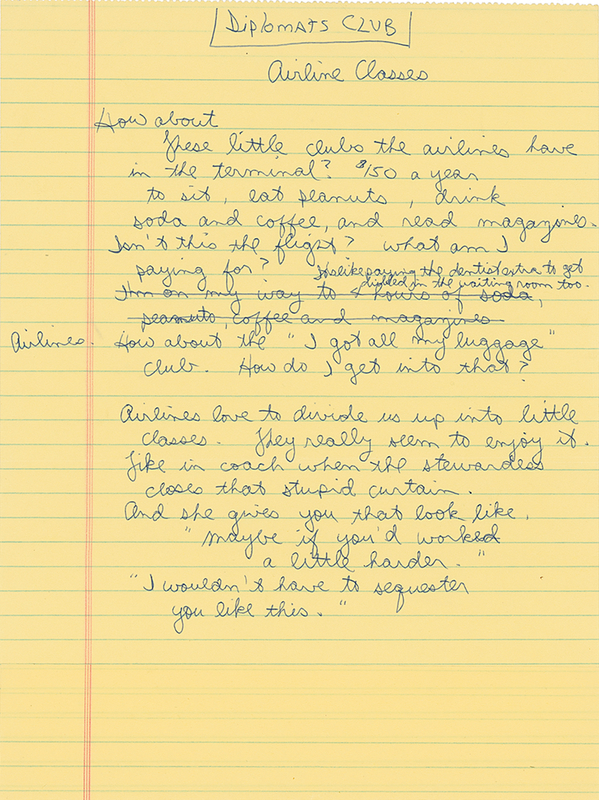 DIPLOMATS CLUB
Airline Classes
How about
These little clubs the airlines have
in the terminal? $150 a year
to sit, eat peanuts, drink
soda and coffee, and read magazines.
Isn't this the flight? What am I
paying for? Its like paying the dentist extra to get
drilled in the waiting room too.
I'm on my way to 4 hours of soda,
peanuts, coffee and magazines
Airlines. How about the "I got all my luggage"
club. How do I get into that?
Airlines love to divide us up into little
classes. They really seem to enjoy it.
Like in coach when the stewardess
closes that stupid curtain.
And she gives you that look like,
"maybe if you'd worked
a little harder."
"I wouldn't have to sequester
you like this."